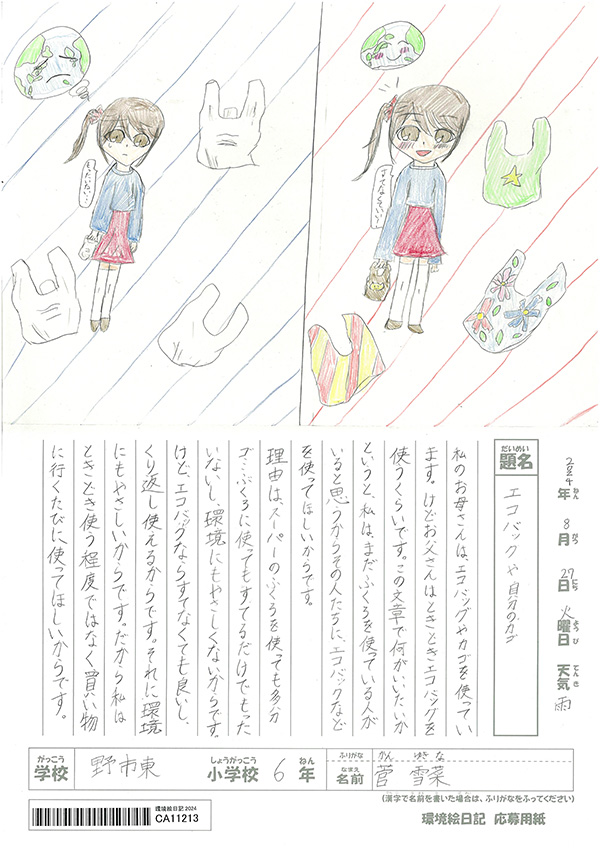 もったいない…
すてなくていい!
2024年 8月 27日 火曜日 天気 雨
ねん がつ にち ようび てんき
だいめい
題名
エコバックや自分のカゴ
私のお母さんは、エコバッグやカゴを使ってい
ます。けどお父さんはときどきエコバッグを
使うくらいです。この文章で何がいいたいか
というと、私は、まだふくろを使っている人が
いると思うからその人たちに、エコバックなど
を使ってほしいからです。
理由は、スーパーのふくろを使っても多分
ゴミぶくろに使ってもすてるだけでもった
いないし、環境にもやさしくないからです。
けど、エコバックならすてなくても良いし、
くり返し使えるからです。それに環境
にもやさしいからです。だから私は
ときどき使う程度ではなく、買い物
に行くたびに使ってほしいからです。
がっこう しょうがっこう ねん
学校 野市東 小学校 6年
ふりがな かん ゆきな
なまえ
名前 菅 雪菜
(漢字で名前を書いた場合は、ふりがなをふってください)
環境絵日記2024
CA11213
環境絵日記 応募用紙